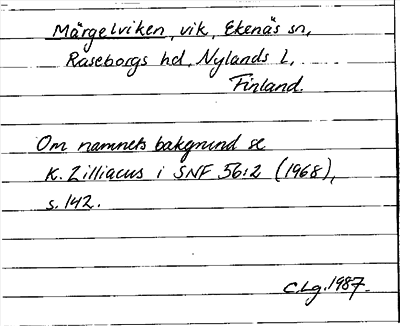 Märgelviken, vik, Ekenäs sn,
Raseborgs hd, Nylands l,
Finland.
Om namnets bakgrund se
K. Zilliacus i SNF 56:2 (1968),
s. 142.
C.Lg. 1987.